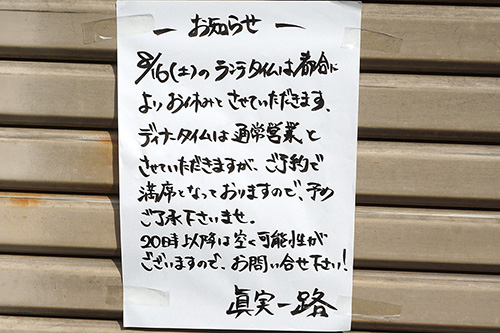 ー お知らせ ー
8/16(土)の ランチタイムは都合に
より お休みと させていただきます、
ディナータイムは 通常営業と
させていただきますが、ご予約で
満席となっておりますので、予め
ご了承下さいませ。
20時以降は空く可能性が
ございますので、お問い合せ下さい!
眞実一路